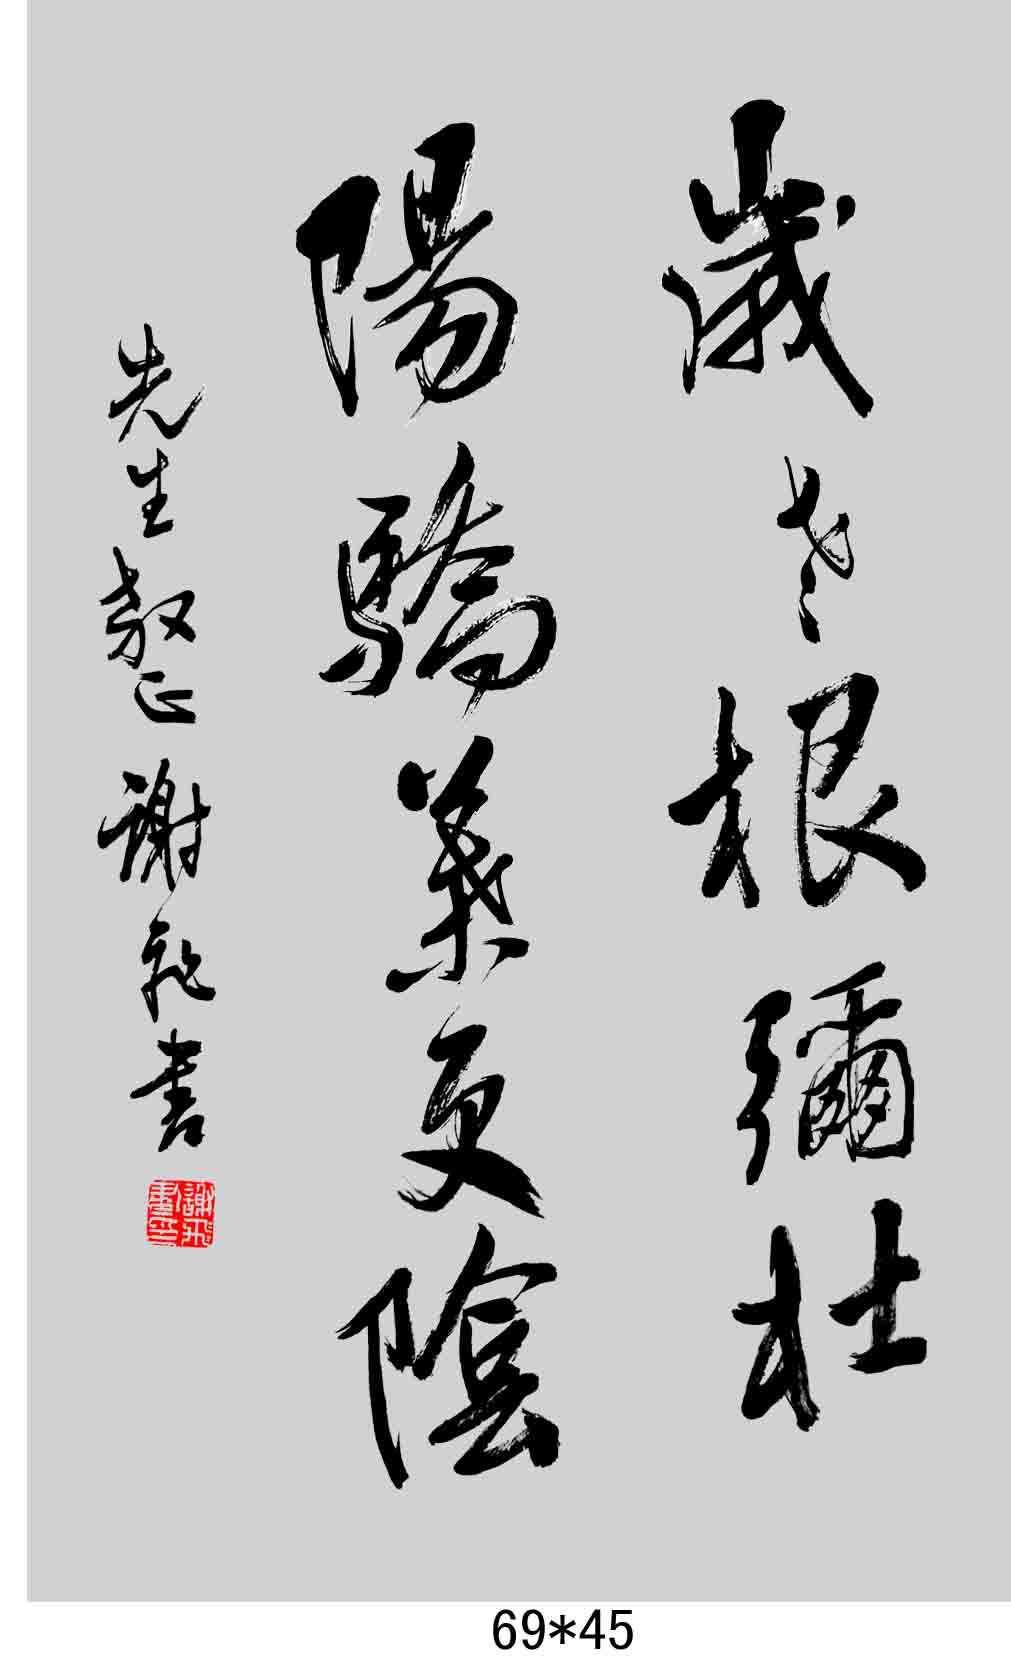 歲老根彌杜
陽驕葉更陰
先生教正 謝飛書
謝飛書印
69*45